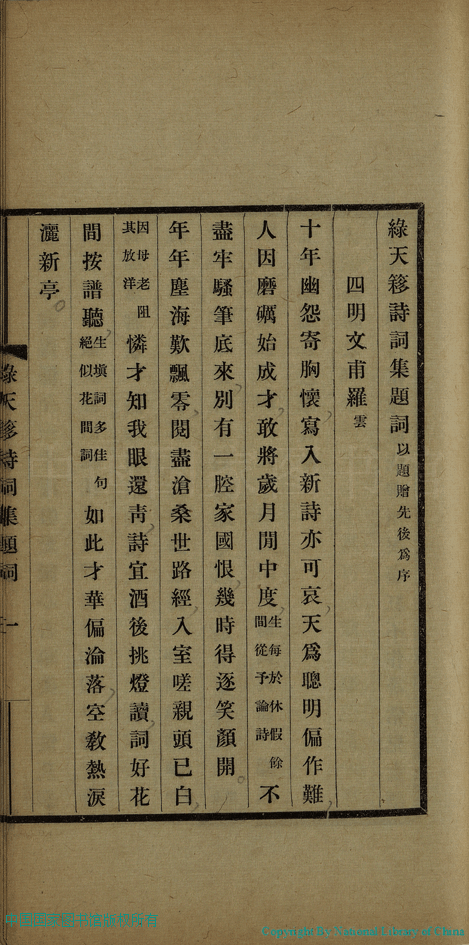 綠天簃詩詞集題詞以題贈先後爲序
四明文甫羅雲
十年幽怨寄胸懷寫入新詩亦可哀天爲聰明偏作難
人因磨礪始成才敢將歲月閒中度生每於休假餘間從予論詩不
盡牢騷筆底來別有一腔家國恨幾時得逐笑顏開
年年塵海歎飄零閱盡滄桑世路經入室嗟親頭已白
因母老阻其放洋憐才知我眼還靑詩宜酒後挑燈讀詞好花
間按譜聽生塡詞多佳句絕似花間詞如此才華偏淪落空敎熱淚
灑新亭
綠天簃詩詞集題詞 一
Copyright By National Library of China